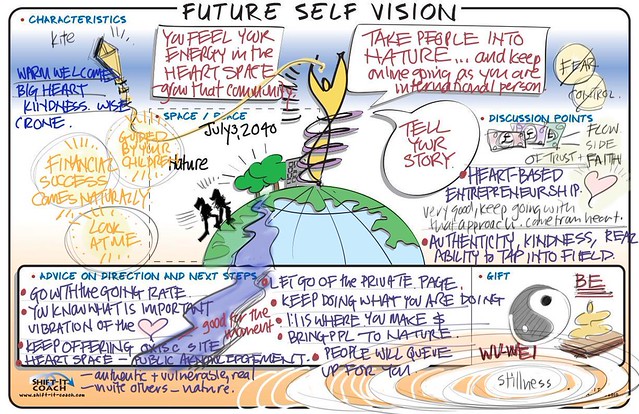 FUTURE SELF VISION
• CHARACTERISTICS
Kite
WARM WELCOME
BIG HEART
KINDNESS. WISE
CRONE.
YOU FEEL YOUR
ENERGY in the
HEART SPACE
grow that community
TAKE PEOPLE INTO
NATURE... and keep
online going as you are
international person
FEAR
CONTROL.
• SPACE / PLACE
July 3, 2040
Nature
GUIDED
BY YOUR
CHILDREN
FINANCIAL
SUCCESS
COMES NATURALLY
LOOK
AT ME.
TELL
YOUR
STORY.
• DISCUSSION POINTS
£ £ £
FLOW
SIDE
OF TRUST + FAITH
• HEART-BASED
ENTREPRENEURSHIP.
very good, keep going with
that approach. come from heart.
• AUTHENTICITY, KINDNESS, REAL
ABILITY to TAP INTO FIELD.
• ADVICE ON DIRECTION AND NEXT STEPS
• GO WITH the GOING RATE.
• YOU KNOW WHAT IS IMPORTANT
VIBRATION OF the
good for the
moment
• KEEP OFFERING SITE
• HEART SPACE – PUBLIC ACKNOWLEDGEMENT.
– authentic + vulnerable, real
– invite others – nature.
• LET GO OF the PRIVATE PAGE.
• KEEP DOING WHAT YOU ARE DOING
• 1:1 IS WHERE YOU MAKE $
BRING PPL TO NATURE.
• PEOPLE WILL QUEUE
UP FOR YOU
• GIFT
BE.
WU-WEI
stillness
SHIFT-IT
COACH
www.shift-it-coach.com